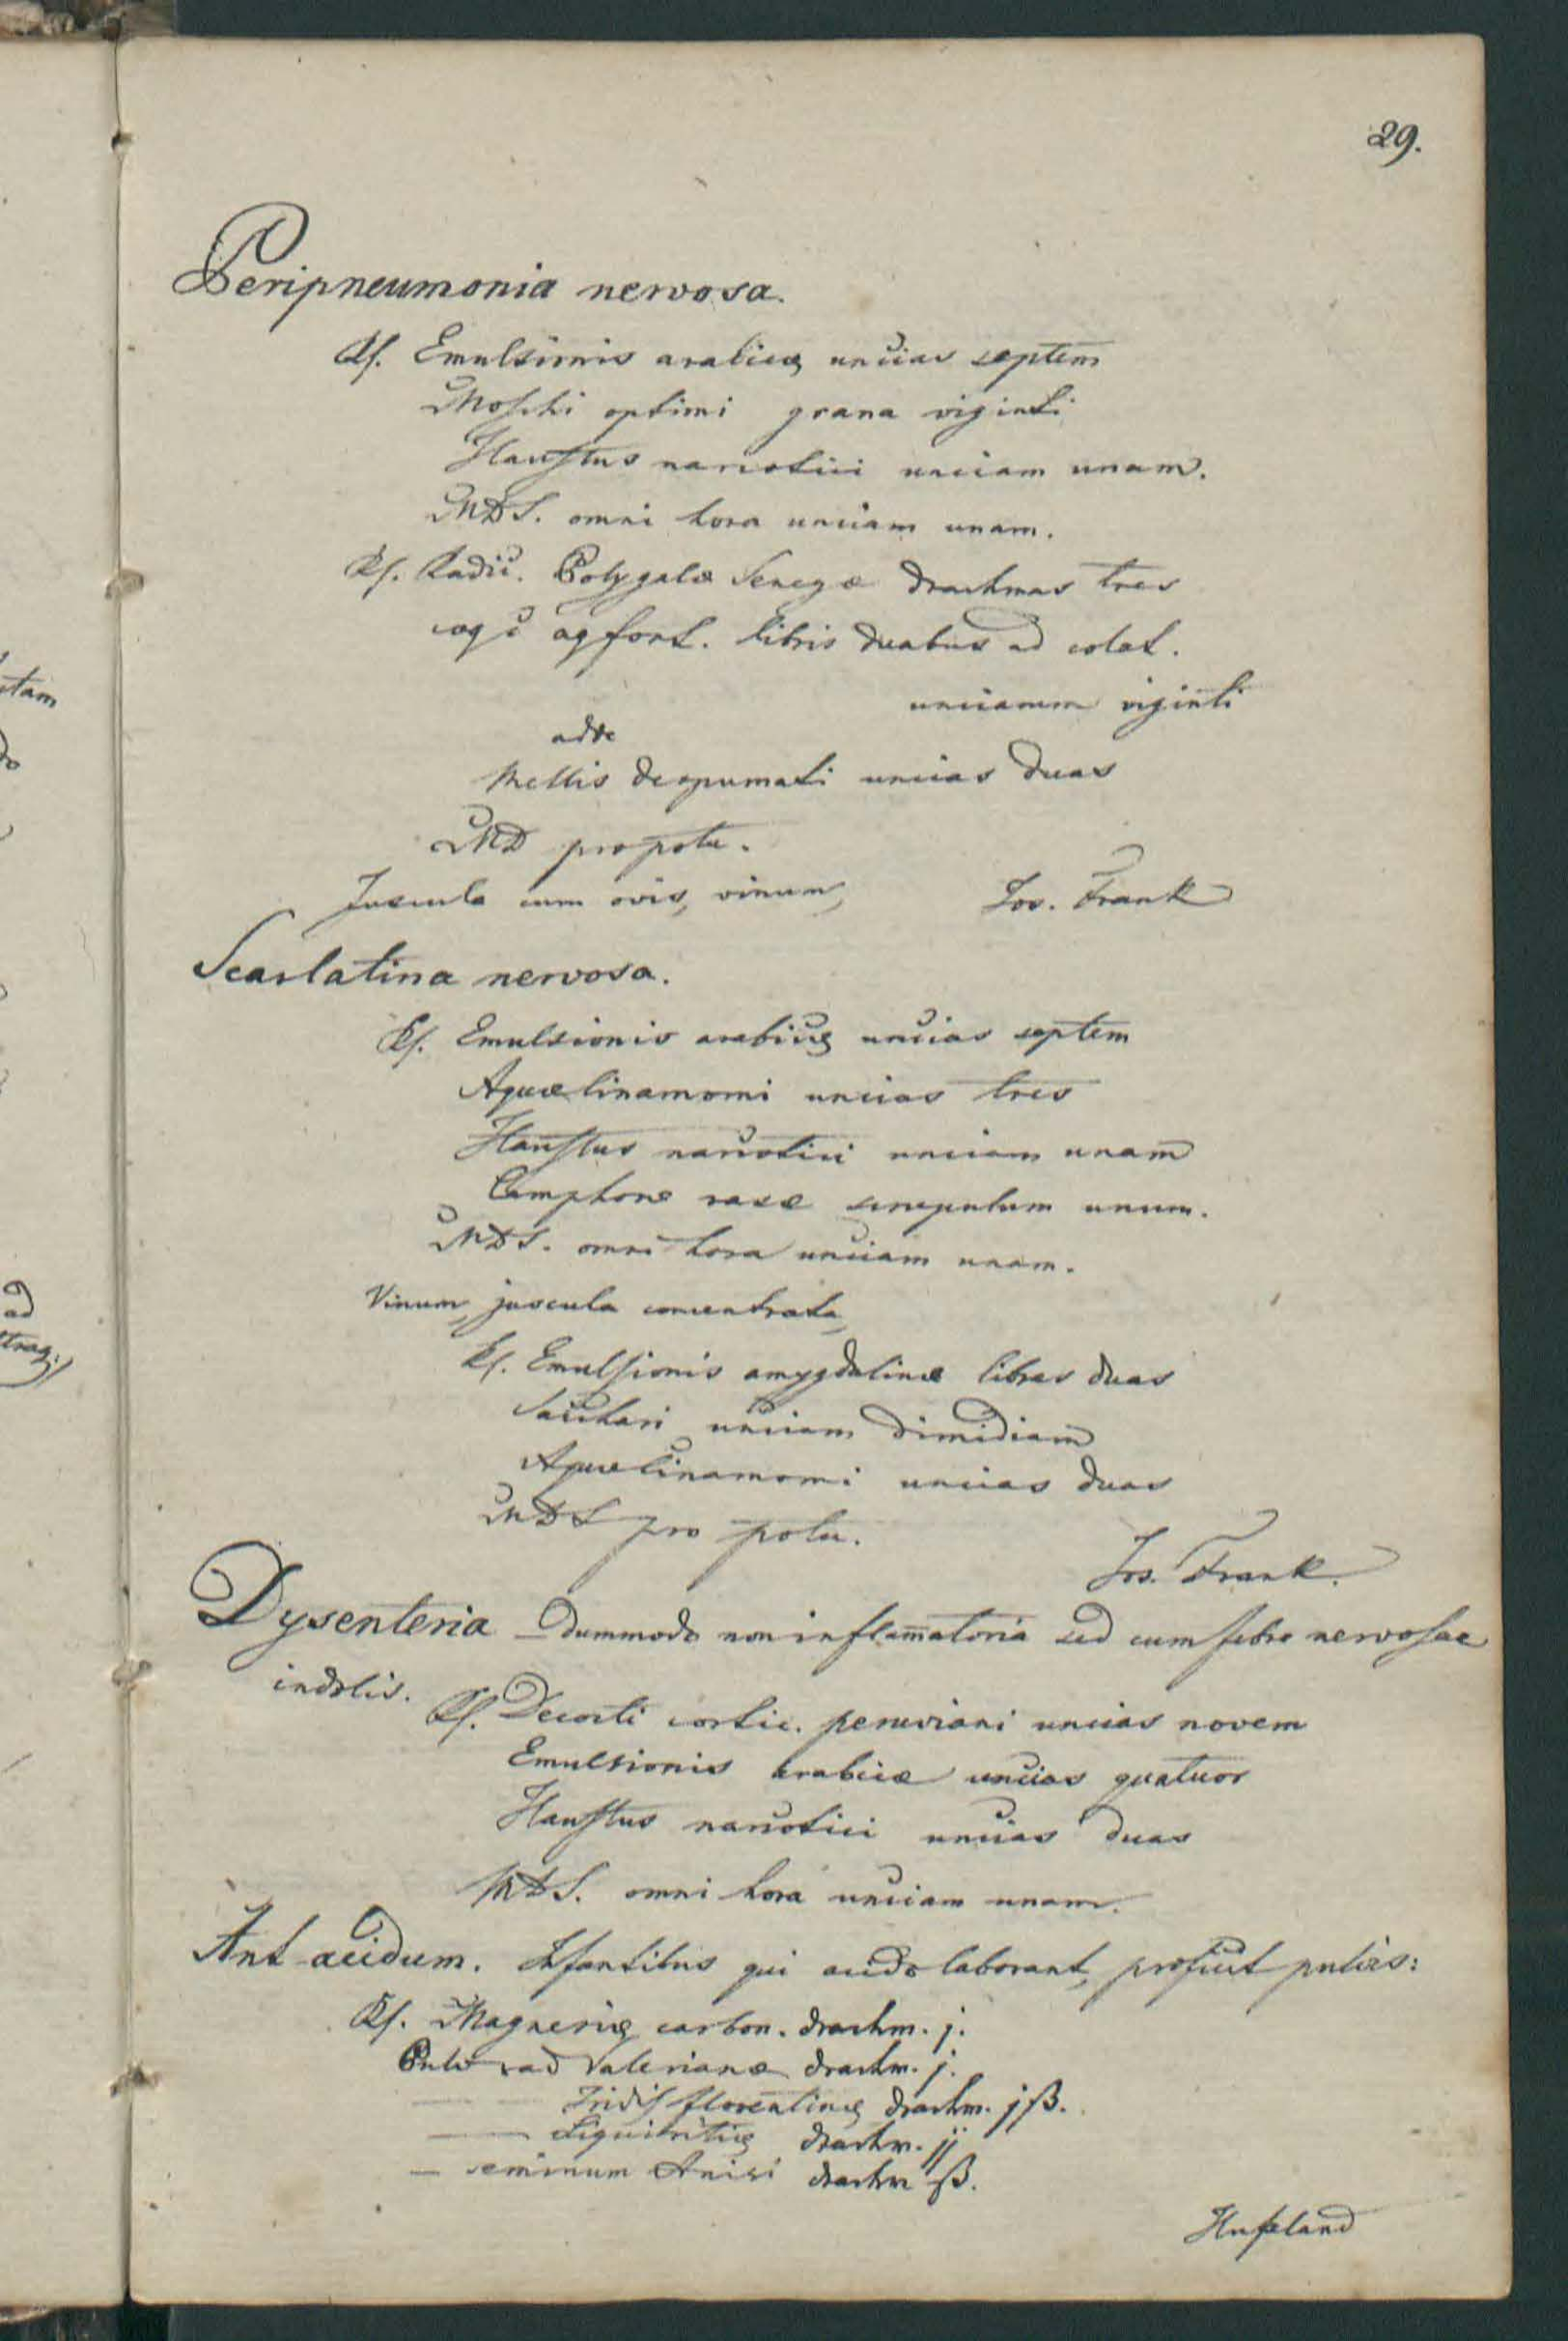 29.
Peripneumonia nervosa.
Rf. Emulsionis arabicæ uncias septem
Moschi optimi grana viginti
Haustus narcotici unciam unam.
MDS. omni hora unciam unam.
Rf. Radic. Polygalæ Senegæ drachmas tres
coq. c aq font. libris duabus ad colat.
unciarum viginti
adde
Mellis despumati uncias duas
MD pro potu.
Juscula cum ovis, vinum,
Jos. Frank
Scarlatina nervosa.
Rf. Emulsionis arabicæ uncias septem
Aquæ Cinamomi uncias tres
Haustus narcotici unciam unam
Camphoræ rasæ scrupulum unum.
MDS. omni hora unciam unam.
Vinum, juscula concentrata,
Rf. Emulsionis amygdalinæ libras duas
Sacchari unciam dimidiam
Aquæ Cinamomi uncias duas
MDS pro potu.
Jos. Frank.
Dysenteria – Dummodo non inflam̄atoria sed cum febre nervosae
indolis.
Rf. Decocti cortic. peruviani uncias novem
Emulsionis arabicæ uncias quatuor
Haustus narcotici uncias duas
MDS. omni hora unciam unam.
Ant-acidum. Infantibus qui acido laborant, proficit pulvis:
Rf. Magnesiæ carbon. drachm. j.
Pulv rad Valerianæ drachm. j.
— — Iridis florentinæ drachm. jß.
— Liquiritiæ drachm. jj
— seminum Anisi drachm ß.
Hufeland
tam
do
ad